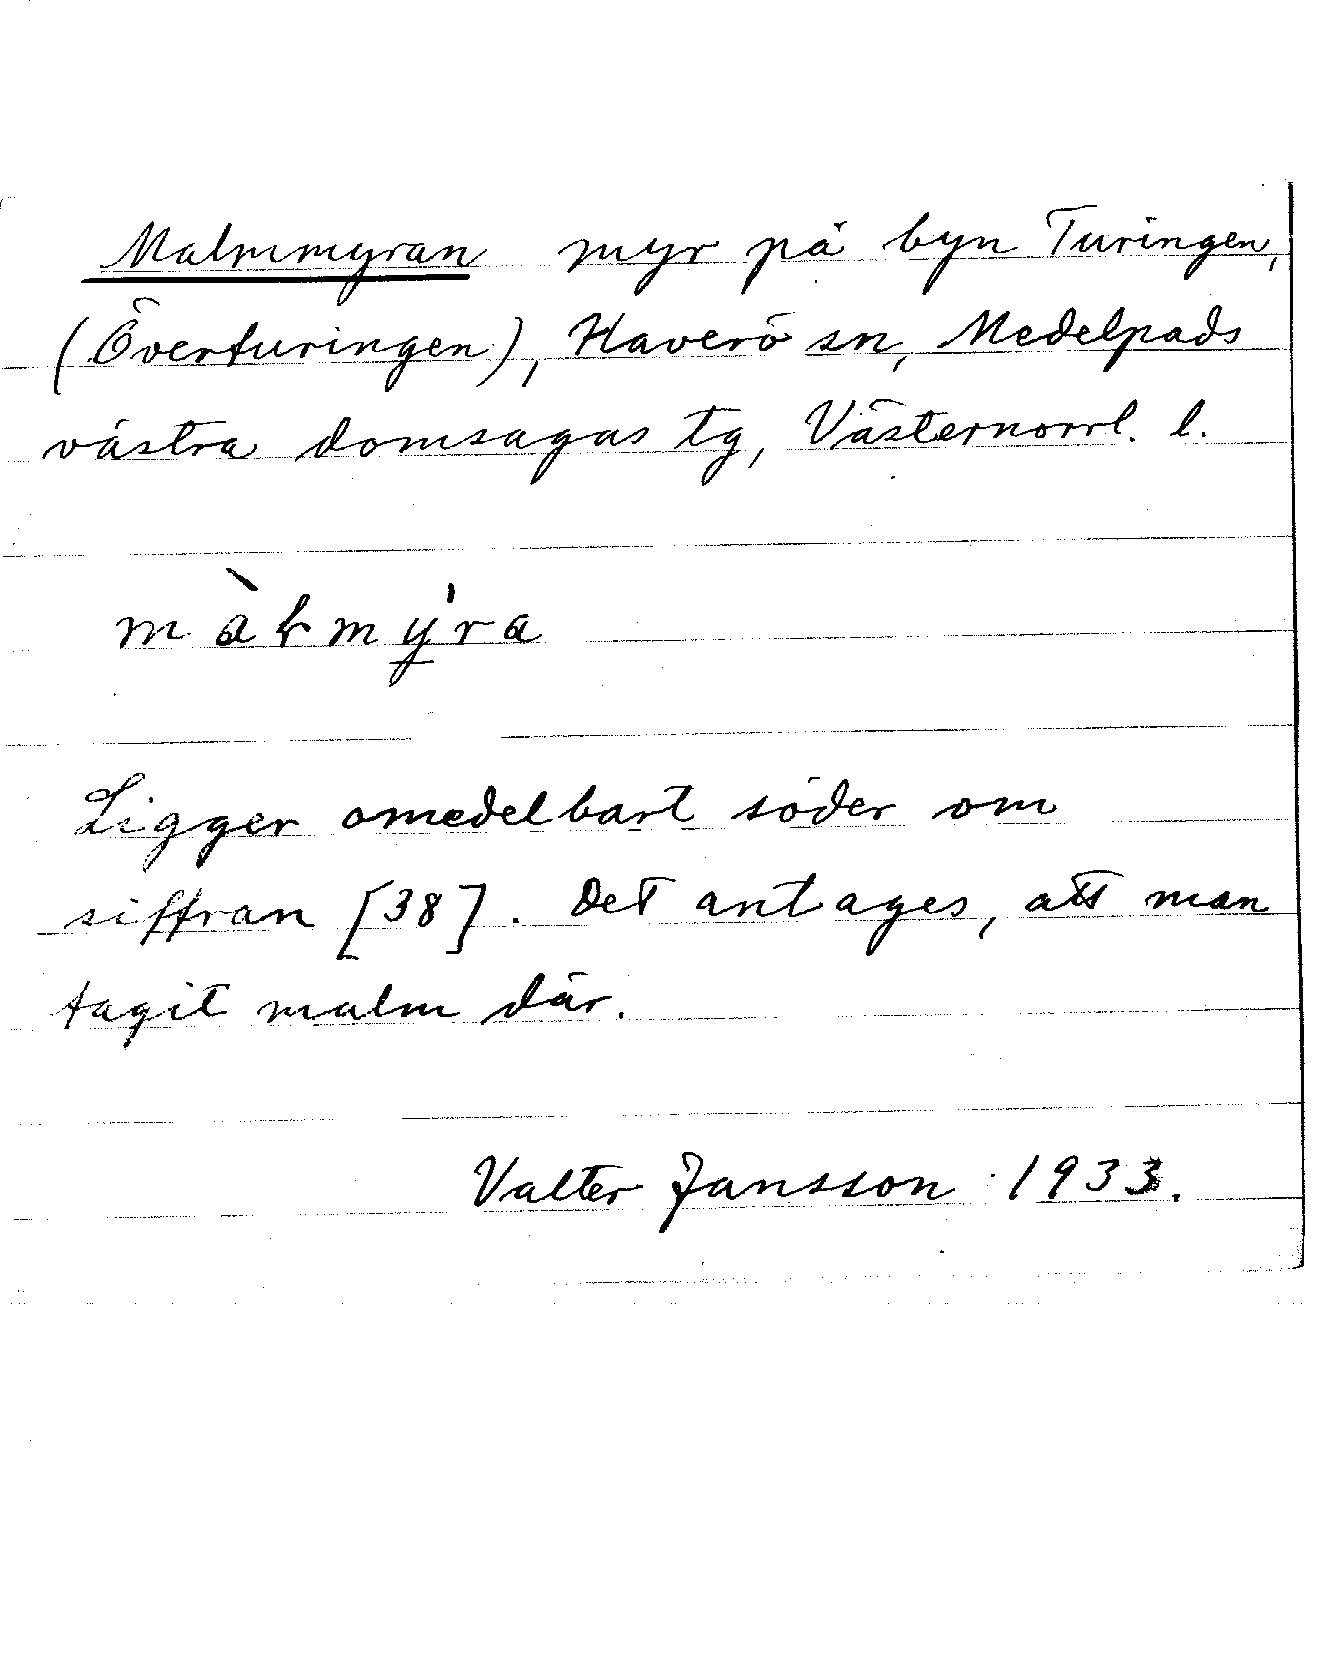 Malmmyran myr på byn Turingen,
(Överturingen), Haverö sn, Medelpads
västra domsagas tg, Västernorrl. l.
màɫmy̱ra
Ligger omedelbart söder om
siffran [38]. Det antages, att man
tagit malm där.
Valter Jansson 1933.